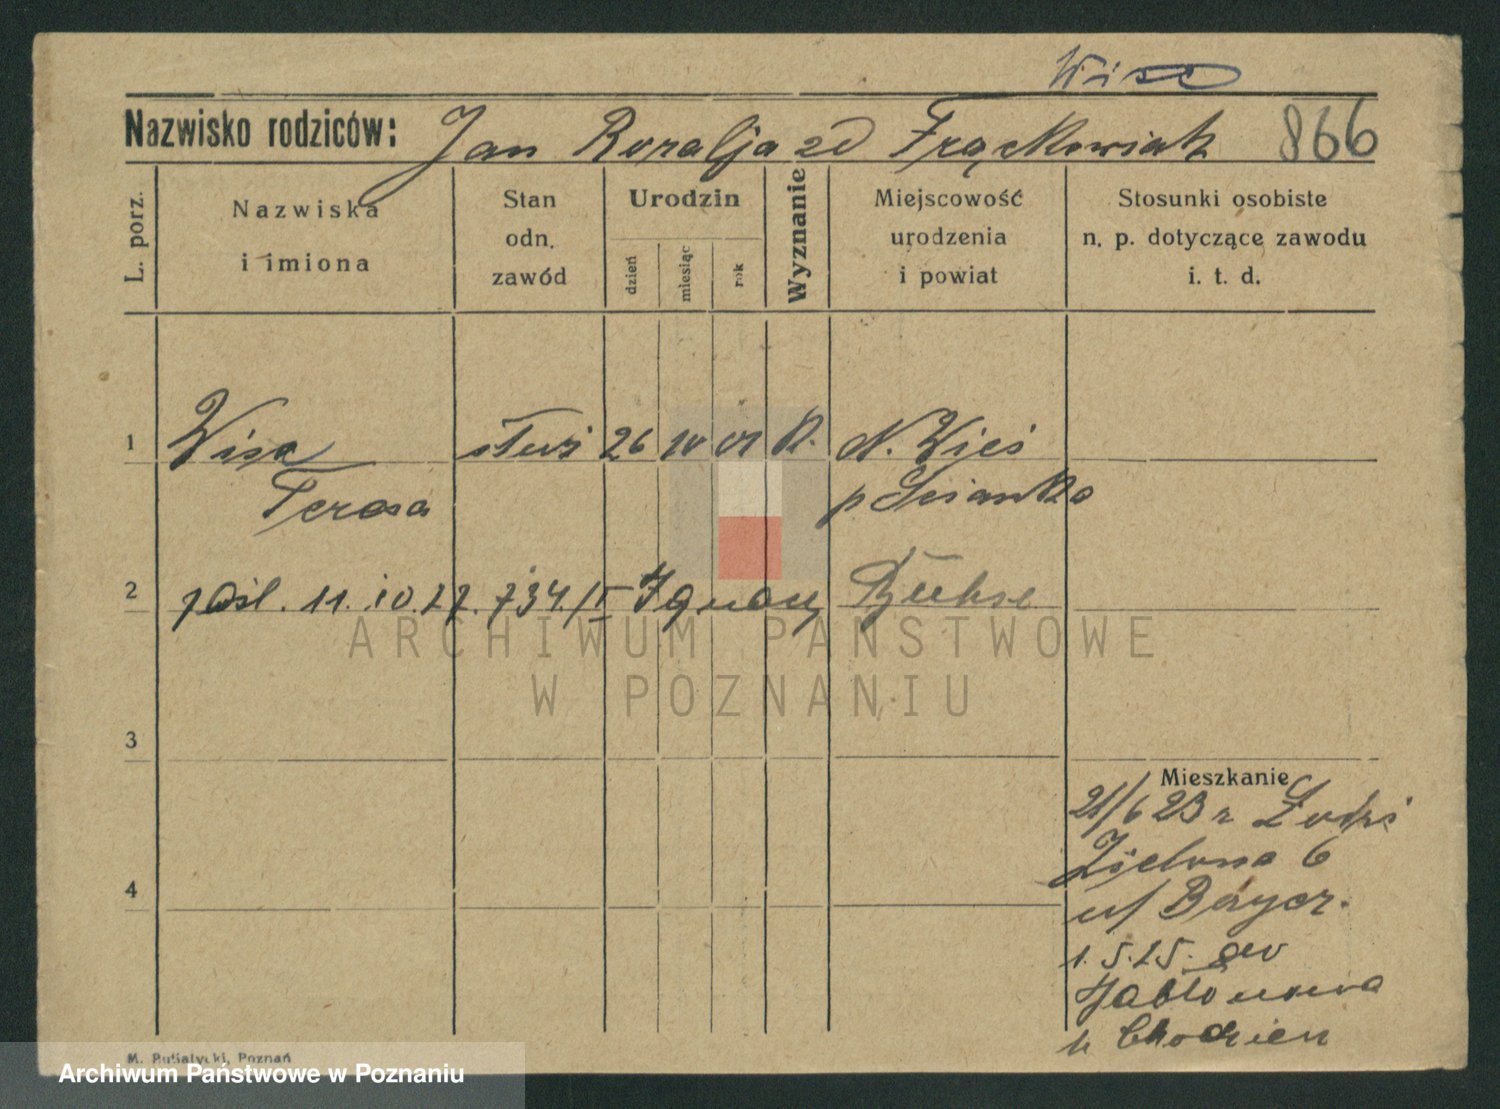 Wisa
Nazwisko rodziców: Jan Rozalja zd Frąckowiak 866
L. porz.
Nazwiska
i imiona
Stan
odn.
zawód
Urodzin
dzień
miesiąc
rok
Wyznanie
Miejscowość
urodzenia
i powiat
Stosunki osobiste
n. p. dotyczące zawodu
i. t. d.
1 Wisa służ 26 10 01 K. N. Wieś
Teresa p
2 pośl. 11. 10. 27. 734/II Ignacy
3
4
Mieszkanie
21/6 23 z Łodzi
Zielona 6
u/
1. 5. 25. do
Jabłonowa
p. Chodzież
M. Putiatycki, Poznań
ARCHIWUM PAŃSTWOWE
W POZNANIU
Archiwum Państwowe w Poznaniu